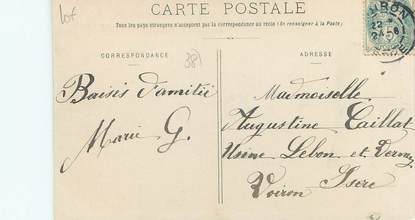 Lot
CARTE POSTALE
Tous les pays étrangers n'acceptent par la correspondance au recto (Se renseigner à la Poste)
CORRESPONDANCE
381
ADRESSE
Baisis d'amitié
Marie G.
Mademoiselle
Augustine Caillat
Usine Lebon et Vernay
Voiron Isère